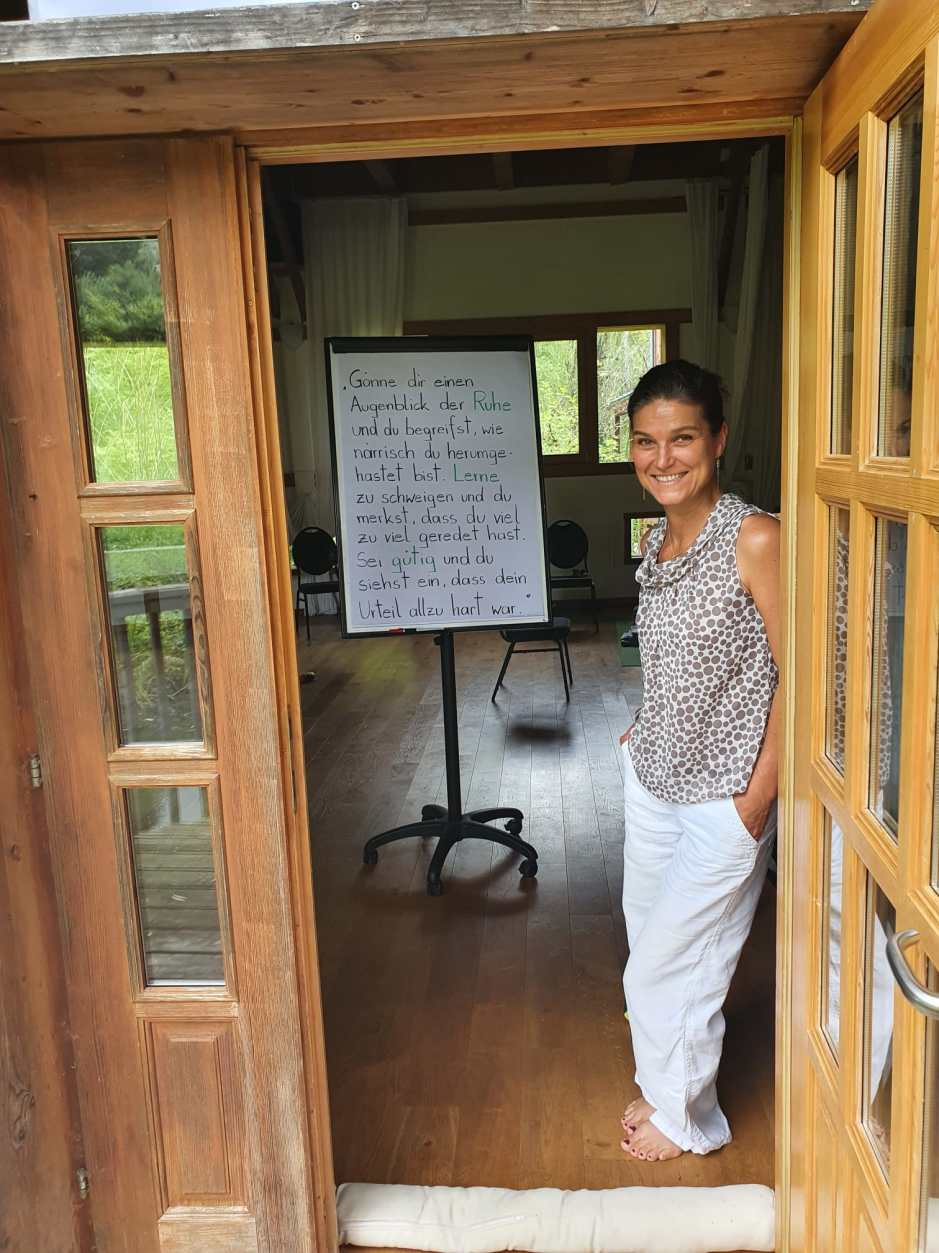 „Gönne dir einen
Augenblick der Ruhe
und du begreifst, wie
närrisch du herumge-
hastet bist. Lerne
zu schweigen und du
merkst, dass du viel
zu viel geredet hast.
Sei gütig und du
siehst ein, dass dein
Urteil allzu hart war."